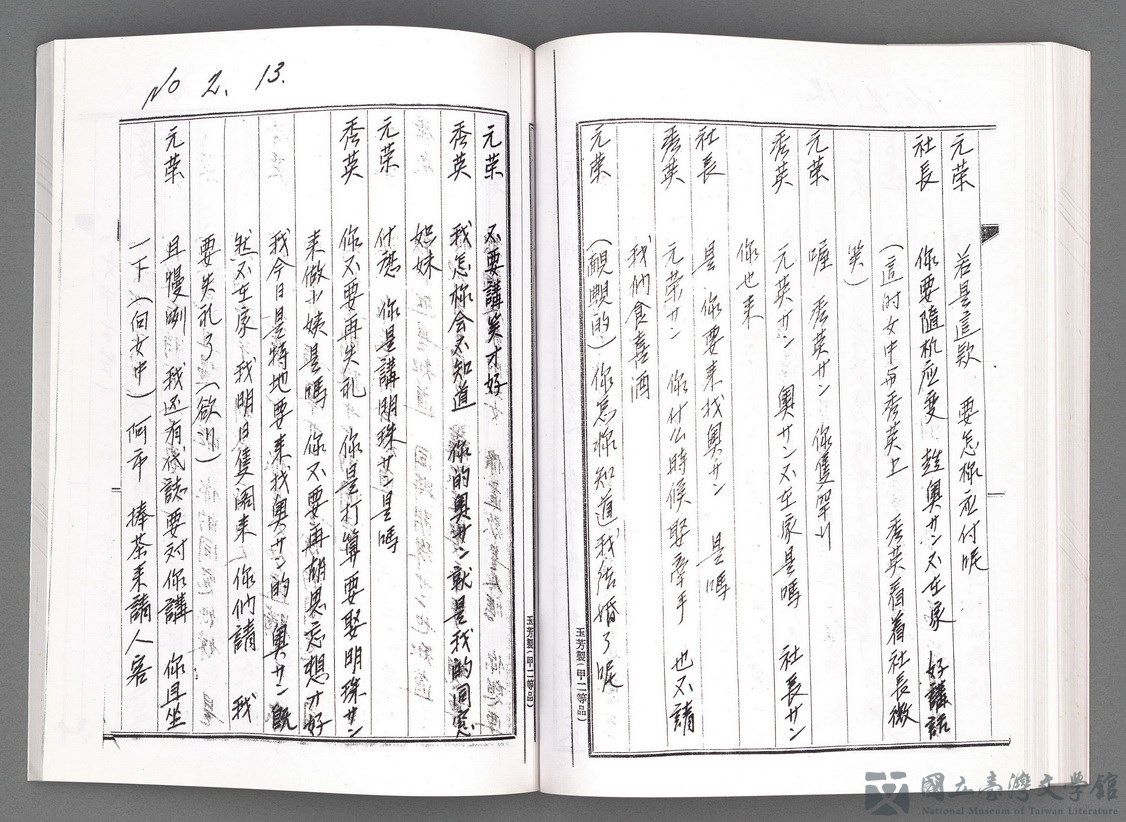 元荣 若是這款 要怎你应付呢
社長 你要隨机应变 趁奧サン不在家 好講話
(這时女中与秀英上 秀英看着社長微
笑)
元荣 喔 秀英サン 你隻罕行
秀英 元英サン 奧サン不在家是嗎 社長サン
你也来
社長 是 你要来找奧サン 是嗎
秀英 元荣サン 你什么時候娶牽手 也不請
我們食喜酒
元荣 (靦覥的) 你怎你知道我结婚了呢
玉芳製(甲二等品)
No 2. 13.
元荣 不要講笑才好
秀英 我怎你会不知道 你的奧サン就是我的同窓
姊妹
元荣 什麽 你是講明珠サン是嗎
秀英 你不要再失礼 你是打算要娶明珠サン
来做小姨是嗎 你不要再胡思忘想才好
我今日是特地要来找奧サン的 奧サン既
然不在家 我明日隻閣来 你們請 我
要失礼了 (欲行)
元荣 且慢啊 我还有代誌要对你講 你且坐
一下 (向女中) 阿市 捧茶来請人客
玉芳製(甲二等品)
國立臺灣文學館
National Museum of Taiwan Literature